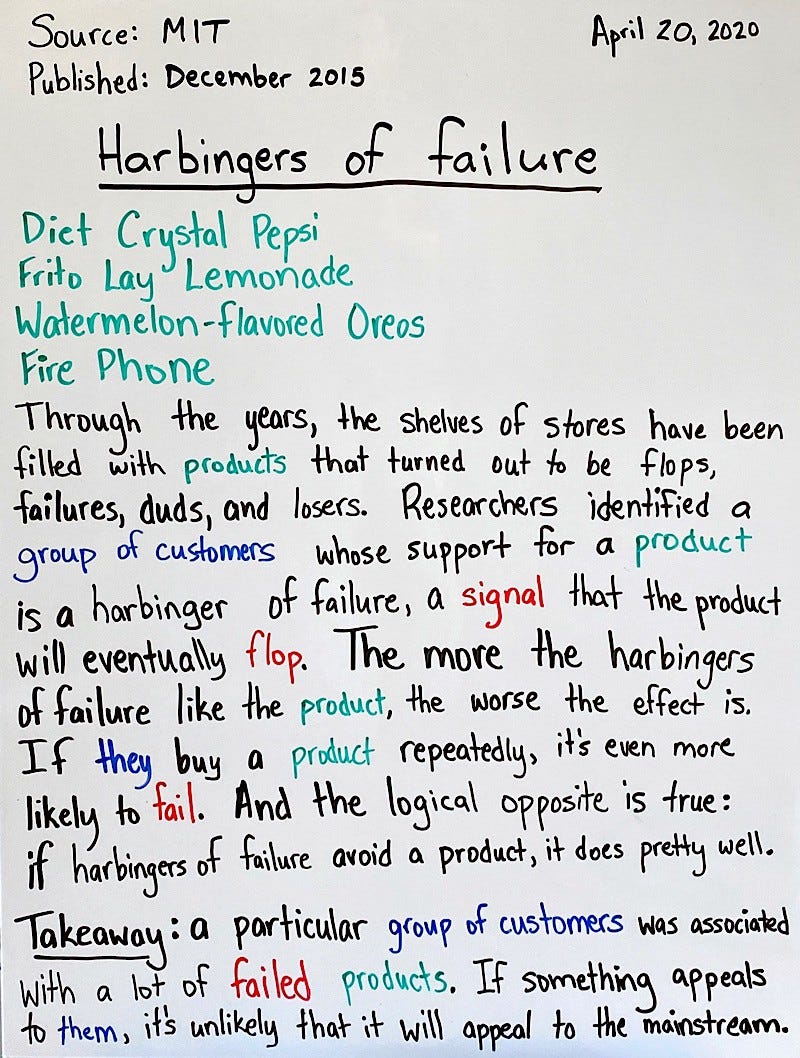 Source: MIT
April 20, 2020
Published: December 2015
Harbingers of failure
Diet Crystal Pepsi
Frito Lay Lemonade
Watermelon-flavored Oreos
Fire Phone
Through the years, the shelves of stores have been
filled with products that turned out to be flops,
failures, duds, and losers. Researchers identified a
group of customers whose support for a product
is a harbinger of failure, a signal that the product
will eventually flop. The more the harbingers
of failure like the product, the worse the effect is.
If they buy a product repeatedly, it's even more
likely to fail. And the logical opposite is true:
if harbingers of failure avoid a product, it does pretty well.
Takeaway: a particular group of customers was associated
with a lot of failed products. If something appeals
to them, it's unlikely that it will appeal to the mainstream.